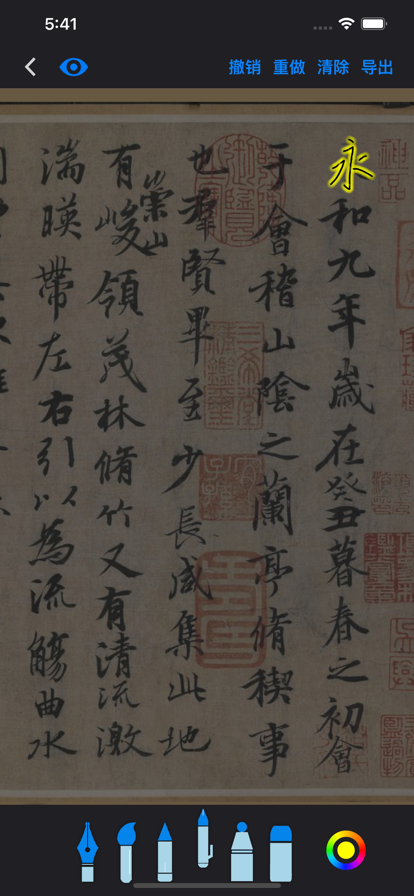 5:41
撤销 重做 清除 导出
永和九年歲在癸丑暮春之初會
于會稽山陰之蘭亭脩稧事
也群賢畢至少長咸集此地
有崇山峻領茂林脩竹又有清流激
湍暎帶左右引以為流觴曲水